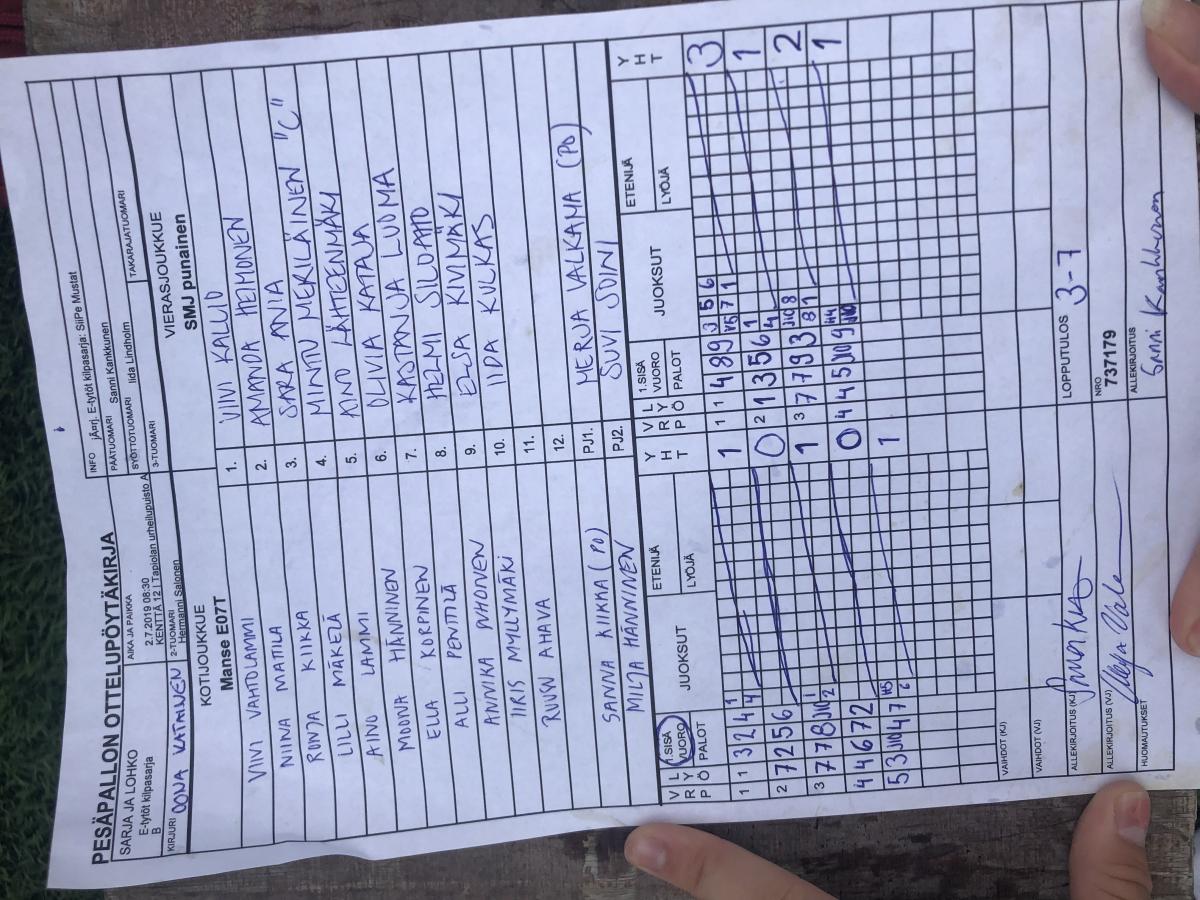 PESÄPALLON OTTELUPÖYTÄKIRJA
SARJA JA LOHKO
E-tytöt kilpasarja
B
AIKA JA PAIKKA
2.7.2019 08:30
KENTTÄ 12 | Tapiolan urheilupuisto A
INFO jÄrj. E-tytöt kilpasarja: SiiPe Mustat
PÄÄTUOMARI Sanni Kankkunen
SYÖTTÖTUOMARI Iida Lindholm
TAKARAJATUOMARI
KIRJURI
2-TUOMARI Hermanni Salonen
3-TUOMARI
KOTIJOUKKUE
Manse E07T
VIERASJOUKKUE
SMJ punainen
VIIVI VAHTOLAMMI 1. VIIVI KALLIO
NIINA MATILA 2. AMANDA HEIMONEN
RONJA KIIKKA 3. SARA ANIA
LILLI MÄKELÄ 4. MINTTU MEKILÄINEN "C"
AINO LAMMI 5. AINO LÄHTEENMÄKI
MOONA HÄNNINEN 6. OLIVIA KATAJA
ELLA KORPINEN 7. KASTANJA LUOMA
ALLI PENTTILÄ 8. HELMI SILOAHO
ANNIKA PIHONEN 9. ELSA KIVIMÄKI
IIRIS MYLLYMÄKI 10. IIDA KULKAS
RUUSU AHAVA 11.
12.
SANNA KIIKKA (PO) PJ1. MERJA VALKAMA (PO)
MILJA HÄNNINEN PJ2. SUVI SOINI
VRP LYÖ 1.SISÄ VUORO PALOT JUOKSUT ETENIJÄ LYÖJÄ YHT VRP LYÖ 1.SISÄ VUORO PALOT JUOKSUT ETENIJÄ LYÖJÄ YHT
1 1 3 2 4 1 4 1 1 1 4 8 9 3 5 6 3
2 7 2 5 6 0 2 1 3 5 6 1 1
3 7 7 8 1 2 1 3 7 7 9 3 8 8 1 2
4 4 6 7 2 0 4 4 5 9 1
5 3 4 7 6 1
VAIHDOT (KJ)
VAIHDOT (VJ)
ALLEKIRJOITUS (KJ)
LOPPUTULOS 3-7
ALLEKIRJOITUS (VJ)
NRO
737179
HUOMAUTUKSET
ALLEKIRJOITUS
Sanni Kankkunen